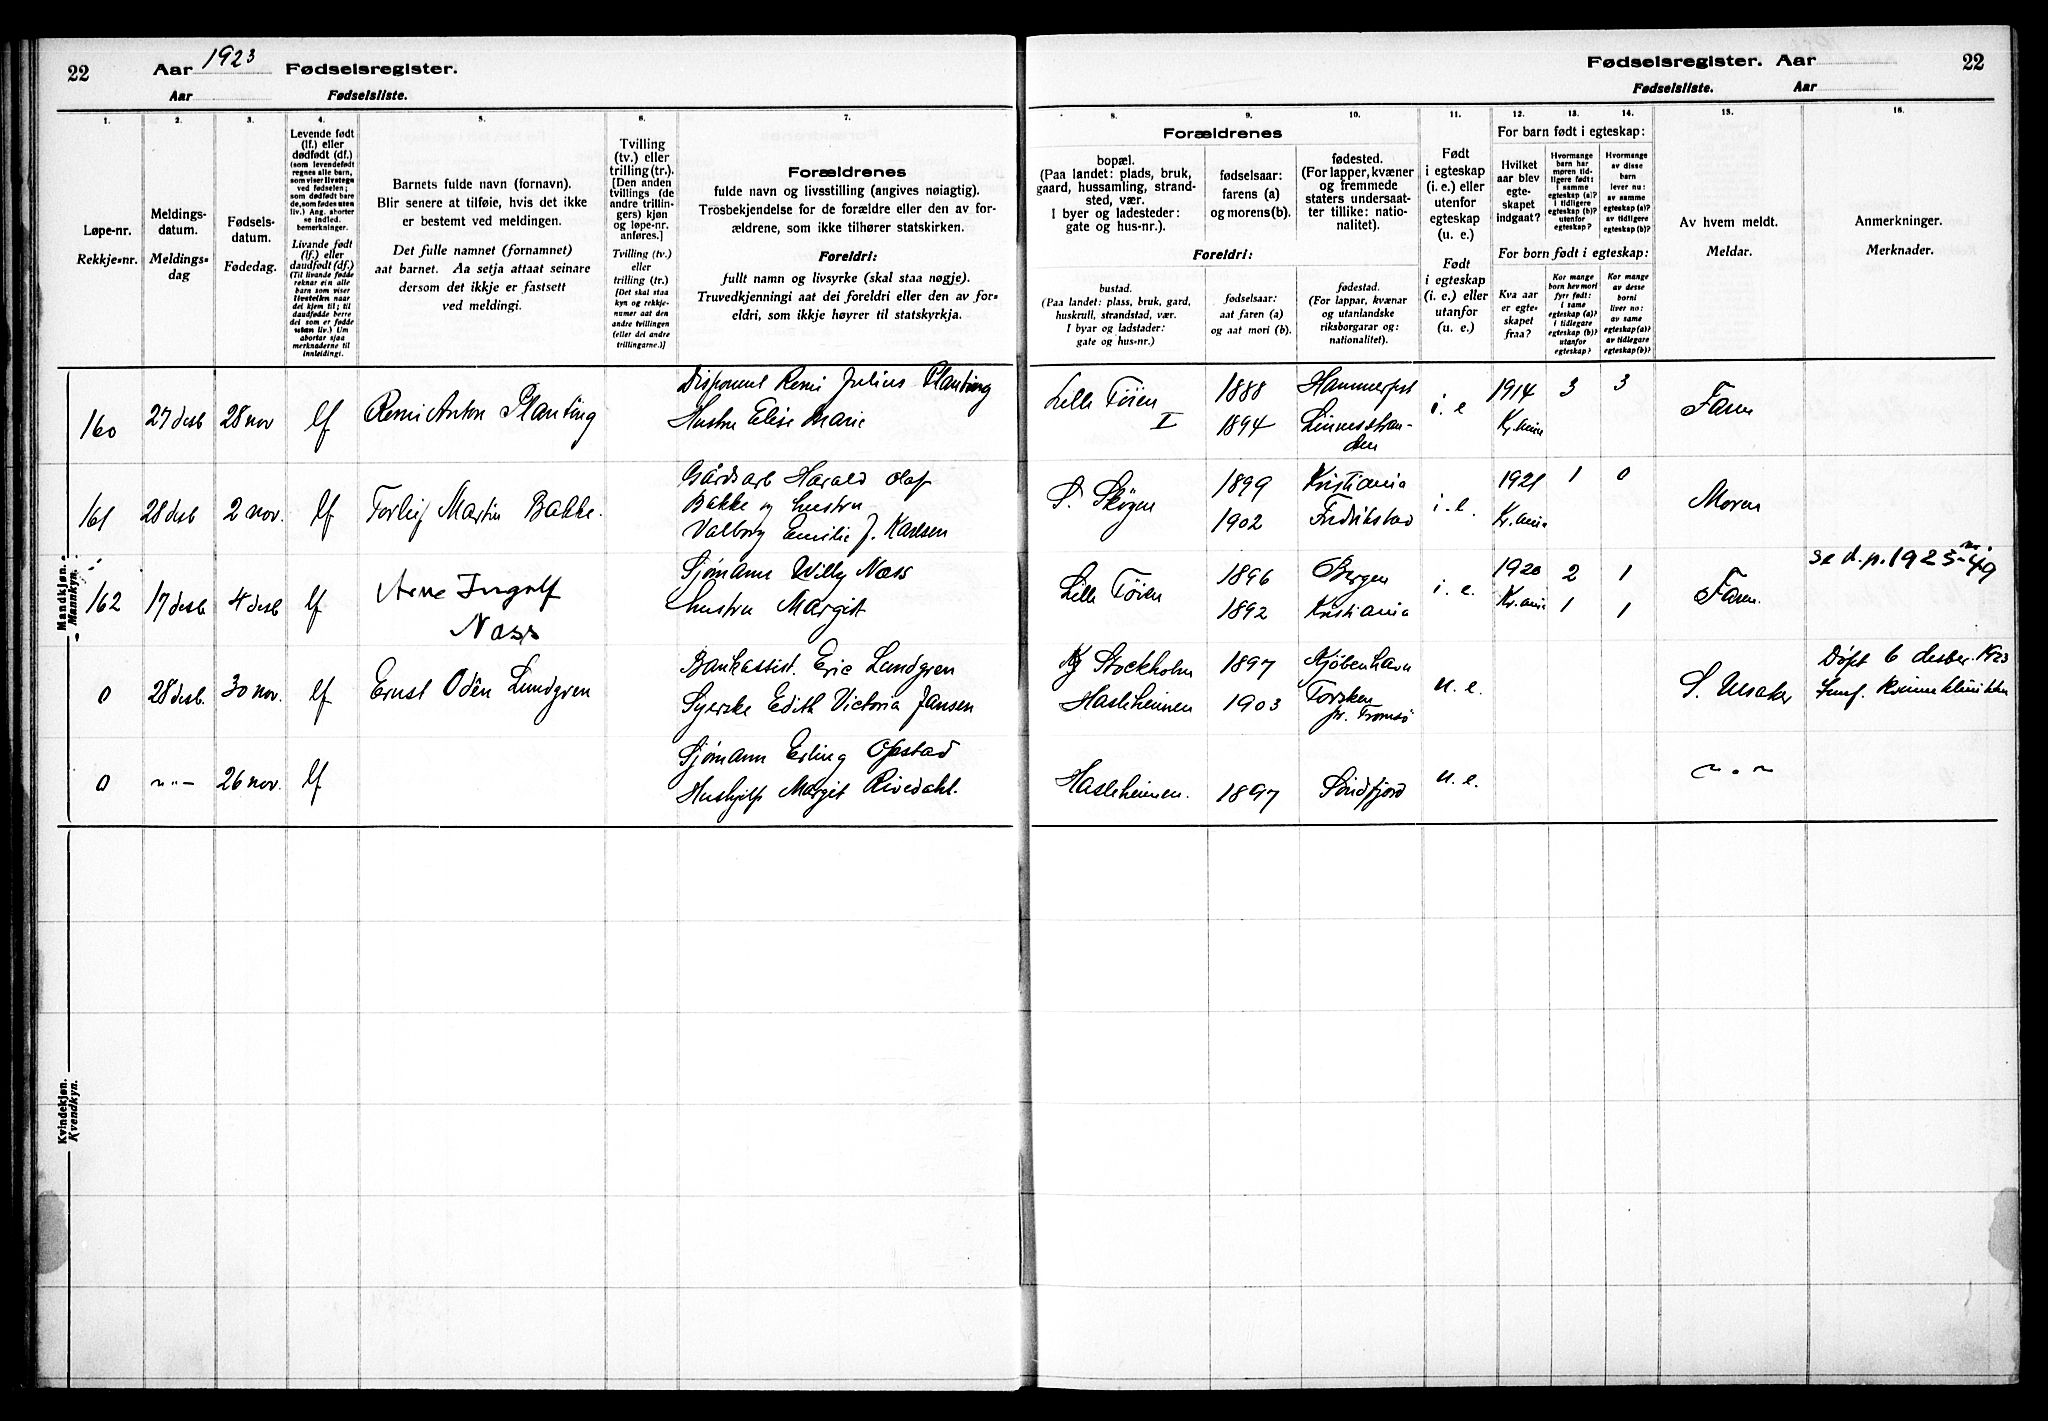 22
Aar 1923 Fødselsregister.
Aar Fødselsliste.
Fødselsregister. Aar
Fødselsliste. Aar
22
1. 2. 3. 4. 5. 6. 7. 8. 9. 10. 11. 12. 13. 14. 15. 16.
Løpe-nr.
Rekkje-nr.
Meldings-
datum.
Meldings-
dag
Fødsels-
datum.
Fødedag.
Levende født
(lf.) eller
dødfødt (df.)
(som levendefødt
regnes alle barn,
som viser livstegn
ved fødselen;
som dødfødt bare
de, som fødes uten
liv.) Ang. aborter
se indled.
bemerkninger.
Livande født
(lf.) eller
daudfødt (df.)
(Til livande fødde
reknar ein alle
barn som viser
livsteikn naar
dei kjem til; til
daudfødde berre
dei som er fødde
utan liv.) Um
abortar sjaa
merknaderne til
innleidingi.
Barnets fulde navn (fornavn).
Blir senere at tilføie, hvis det ikke
er bestemt ved meldingen.
Det fulle namnet (fornamnet)
aat barnet. Aa setja attaat seinare
dersom det ikkje er fastsett
ved meldingi.
Tvilling
(tv.) eller
trilling (tr.).
[Den anden
tvillings (de
andre trillin-
gers) kjøn
og løpe-nr.
anføres.]
Tvilling (tv.)
eller
trilling (tr.)
[Det skal staa
kyn og rekkje-
numer aat den
andre tvillingen
(eller dei andre
trillingarne.)]
Forældrenes
fulde navn og livsstilling (angives nøiagtig).
Trosbekjendelse for de forældre eller den av for-
ældrene, som ikke tilhører statskirken.
Foreldri:
fullt namn og livsyrke (skal staa nøgje).
Truvedkjenningi aat dei foreldri eller den av for-
eldri, som ikkje høyrer til statskyrkja.
Forældrenes
bopæl.
(Paa landet: plads, bruk,
gaard, hussamling, strand-
sted, vær.
I byer og ladesteder:
gate og hus-nr.).
fødselsaar:
farens (a)
og morens (b).
fødested.
(For lapper, kvæner
og fremmede
staters undersaat-
ter tillike: natio-
nalitet).
Foreldri:
bustad.
(Paa landet: plass, bruk, gard,
huskrull, strandstad, vær.
I byar og ladstader:
gate og hus-nr.)
fødselsaar:
aat faren (a)
og aat mori (b).
fødestad.
(For lappar, kvænar
og utanlandske
riksborgarar og:
nationalitet).
Født
i egteskap
(i. e.) eller
utenfor
egteskap
(u. e.)
Født
i egteskap
(i. e.) eller
utanfor
(u. e.)
For barn født i egteskap:
Hvilket
aar blev
egte-
skapet
indgaat?
Hvormange
barn har
møren tid-
ligere født:
i samme
egteskap (a)?
i tidligere
egteskap (b)?
utenfor
egteskap?
Hvormange
av disse
barn
lever nu:
av samme
egteskap (a)?
av tidligere
egteskap (b)?
For born født i egteskap:
Kva aar
er egte-
skapet
fraa?
Kor mange
born hev mori
fyrr født:
i same
egteskap (a)?
i tidlegare
egteskap (b)?
utanfor
egteskap?
Kor mange
av desse
borni
liver no:
av same
egteskap (a)?
av tidlegare
egteskap (b)?
Av hvem meldt.
Meldar.
Anmerkninger.
Merknader.
Mandkjøn.
Mannkyn.
160 27 desb 28 nov lf Remi Anton Planting Disponent Remi Julius Planting Lille Tøien 1888 Hammerfest i. e 1914 3 3 Faren
Hustru Elise Marie I 1894 Linnesstran-
den Kr.ania
161 28 desb 2 nov. lf Torleif Martin Bakke. Gårdsarb Harald Olaf S. Skøyen 1899 Kristiania i. e. 1921 1 0 Moren
Bakke og hustru 1902 Fredrikstad Kr.ania
Valborg Emilie J. Karlsen
162 17 desb 4 desb lf Arne Ingolf Sjømann Willy Næss Lille Tøien 1896 Bergen i. e. 1920 2 1 Faren. se d.p. 1925 nr. 49
Næss hustru Margit 1892 Kristiania Kr.ania 1 1
0 28 desb. 30 nov. lf Ernst Odên Lundgren Bankassist. Eric Lundgren Stockholm 1897 Kjøbenhavn u. e. S. Ulsaker Døpt 6 desber. 1923
Syerske Edith Victoria Jansen Hasleheimen 1903 Torsken Kvinneklinikken
pr. Tromsø
0 —"— 26 nov. lf Sjømann Erling Opstad Hasleheimen. 1897 Søndfjord u. e. —"—
Hushjelp Margit Rivedahl.
Kvindekjøn.
Kvendkyn.